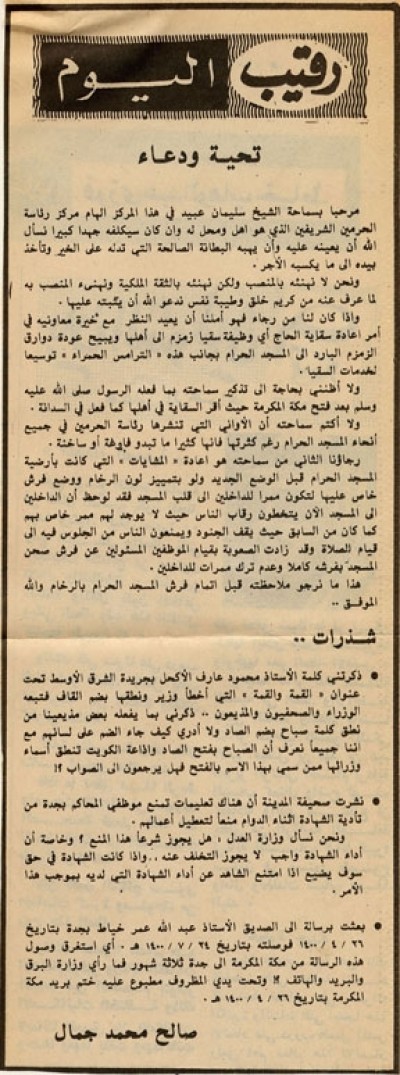 رقيب اليوم
تحية ودعاء
مرحبا بسماحة الشيخ سليمان عبيد في هذا المركز الهام مركز رئاسة
الحرمين الشريفين الذي هو اهل ومحل له وان كان سيكلفه جهدا كبيرا نسأل
الله أن يعينه عليه وأن يهبه البطانة الصالحة التي تدله على الخير وتأخذ
بيده الى ما يكسبه الأجر .
ونحن لا نهنئه بالمنصب ولكن نهنئه بالثقة الملكية ونهنىء المنصب به
لما عرف عنه من كريم خلق وطيبة نفس ندعو الله أن يثبته عليها .
واذا كان لنا من رجاء فهو أملنا أن يعيد النظر مع خيرة معاونيه في
أمر اعادة سقاية الحاج أي وظيفة سقيا زمزم الى أهلها ويبيح عودة دوارق
الزمزم البارد الى المسجد الحرام بجانب هذه « الترامس الحمراء » توسيعا
لخدمات السقيا .
ولا أظنني بحاجة الى تذكير سماحته بما فعله الرسول صلى الله عليه
وسلم بعد فتح مكة المكرمة حيث أقر السقاية في أهلها كما فعل في السدانة .
ولا أكتم سماحته أن الأواني التي تنشرها رئاسة الحرمين في جميع
أنحاء المسجد الحرام رغم كثرتها فانها كثيرا ما تبدو فارغة أو ساخنة .
رجاؤنا الثاني من سماحته هو اعادة « المشايات » التي كانت بأرضية
المسجد الحرام قبل الوضع الجديد ولو بتمييز لون الرخام ووضع فرش
خاص عليها لتكون ممرا للداخلين الى قلب المسجد فقد لوحظ أن الداخلين
الى المسجد الآن يتخطون رقاب الناس حيث لا يوجد لهم ممر خاص بهم
كما كان من السابق حيث يقف الجنود ويمنعون الناس من الجلوس فيه الى
قيام الصلاة وقد زادت الصعوبة بقيام الموظفين المسئولين عن فرش صحن
المسجد بفرشه كاملا وعدم ترك ممرات للداخلين .
هذا ما نرجو ملاحظته قبل اتمام فرش المسجد الحرام بالرخام والله
الموفق ..
شذرات ..
● ذكرتني كلمة الأستاذ محمود عارف الأكحل بجريدة الشرق الأوسط تحت
عنوان « القمة والقمة » التي أخطأ وزير ونطقها بضم القاف فتبعه
الوزراء والصحفيون والمذيعون .. ذكرني بما يفعله بعض مذيعينا من
نطق كلمة صباح بضم الصاد ولا أدري كيف جاء الضم على لسانهم مع
اننا جميعاً نعرف أن الصباح بفتح الصاد واذاعة الكويت تنطق أسماء
وزرائها ممن سمي بهذا الاسم بالفتح فهل يرجعون الى الصواب ؟!
● نشرت صحيفة المدينة أن هناك تعليمات تمنع موظفي المحاكم بجدة من
تأدية الشهادة اثناء الدوام منعاً لتعطيل أعمالهم .
ونحن نسأل وزارة العدل : هل يجوز شرعاً هذا المنع ؟ وخاصة أن
أداء الشهادة واجب لا يجوز التخلف عنه .. واذا كانت الشهادة في حق
سوف يضيع اذا امتنع الشاهد عن أداء الشهادة التي لديه بموجب هذا
الأمر .
● بعثت برسالة الى الصديق الأستاذ عبد الله عمر خياط بجدة بتاريخ
٢٦ / ٤ / ١٤٠٠ فوصلته بتاريخ ٢٤ / ٧ / ١٤٠٠ هـ . أي استغرق وصول
هذه الرسالة من مكة المكرمة الى جدة ثلاثة شهور فما رأي وزارة البرق
والبريد والهاتف ؟! وتحت يدي المظروف مطبوع عليه ختم بريد مكة
المكرمة بتاريخ ٢٦ / ٤ / ١٤٠٠ هـ .
صالح محمد جمال